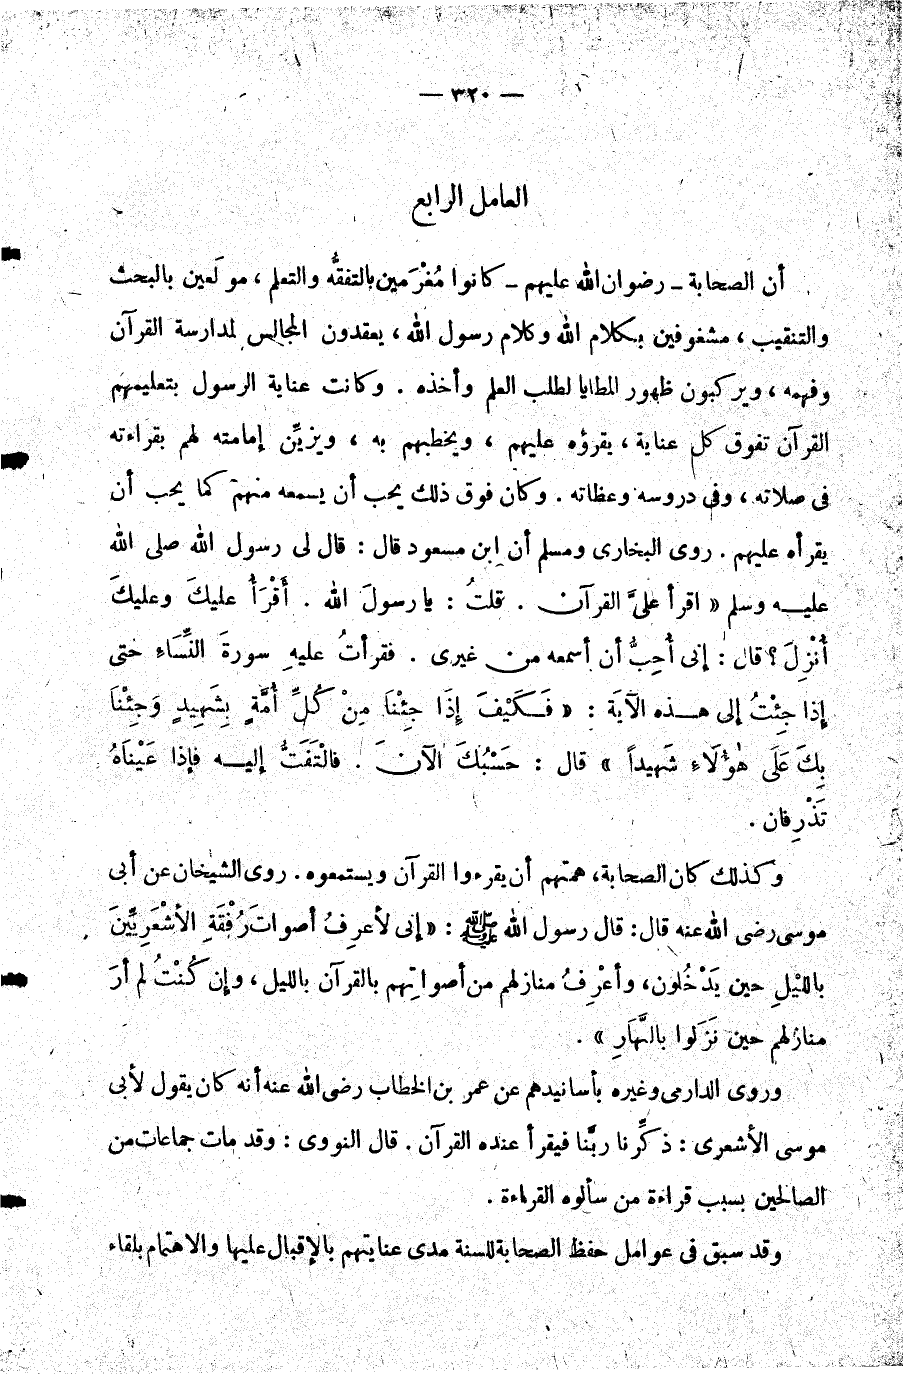 — ٣٢٠ —
العامل الرابع
أن الصحابة ـ رضوان الله عليهم ـ كانوا مُغْرَمين بالتفقُّه والتعلم ، مولَعين بالبحث
والتنقيب ، مشغوفين بكلام الله وكلام رسول الله ، يعقدون المجالس لمدارسة القرآن
وفهمه ، ويركبون ظهور المطايا لطلب العلم وأخذه . وكانت عناية الرسول بتعليمهم
القرآن تفوق كل عناية ، يقرؤه عليهم ، ويخطبهم به ، ويزيِّن إمامته لهم بقراءته
فى صلاته ، وفى دروسه وعظاته . وكان فوق ذلك يحب أن يسمعه منهم كما يحب أن
يقرأه عليهم . روى البخارى ومسلم أن ابن مسعود قال : قال لى رسول الله صلى الله
عليه وسلم « اقرأ علىَّ القرآن . قلتُ : يا رسولَ الله . أَقْرَأُ عليكَ وعليكَ
أُنْزِلَ ؟ قال : إنى أُحِبُّ أن أسمعه من غيرى . فقرأتُ عليهِ سورةَ النِّسَاءِ حتى
إذا جِئْتُ إلى هذه الآيَة : « فَكَيْفَ إِذَا جِئْنَا مِنْ كُلِّ أُمَّةٍ بِشَهِيدٍ وَجِئْنَا
بِكَ عَلَى هٰؤُلَاءِ شَهِيداً » قال : حَسْبُكَ الآنَ . فالْتَفَتُّ إليه فإذا عَيْنَاهُ
تَذْرِفان .
وكذلك كان الصحابة، همتهم أن يقرءوا القرآن ويستمعوه . روى الشيخان عن أبى
موسى رضى الله عنه قال : قال رسول الله ﷺ : « إنى لأعرفُ أصواتَ رُفْقَةِ الأشْعَرِيِّينَ
بالليْلِ حين يَدْخُلون، وأعْرِفُ منازلهم من أصواتِهم بالقرآن بالليل ، وإن كُنْتُ لم أرَ
منازلهم حين نَزَلوا بالنَّهَارِ » .
وروى الدارمى وغيره بأسانيدهم عن عمر بن الخطاب رضى الله عنه أنه كان يقول لأبى
موسى الأشعرى : ذكِّرنا ربَّنا فيقرأ عنده القرآن . قال النووى : وقد مات جماعات من
الصالحين بسبب قراءة من سألوه القراءة .
وقد سبق فى عوامل حفظ الصحابة للسنة مدى عنايتهم بالإقبال عليها والاهتمام بلقاء